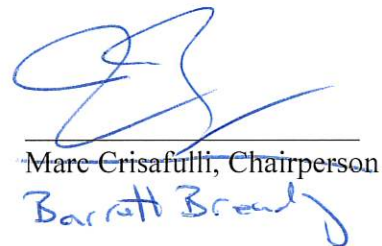 Marc Crisafulli, Chairperson
Barrett Bready